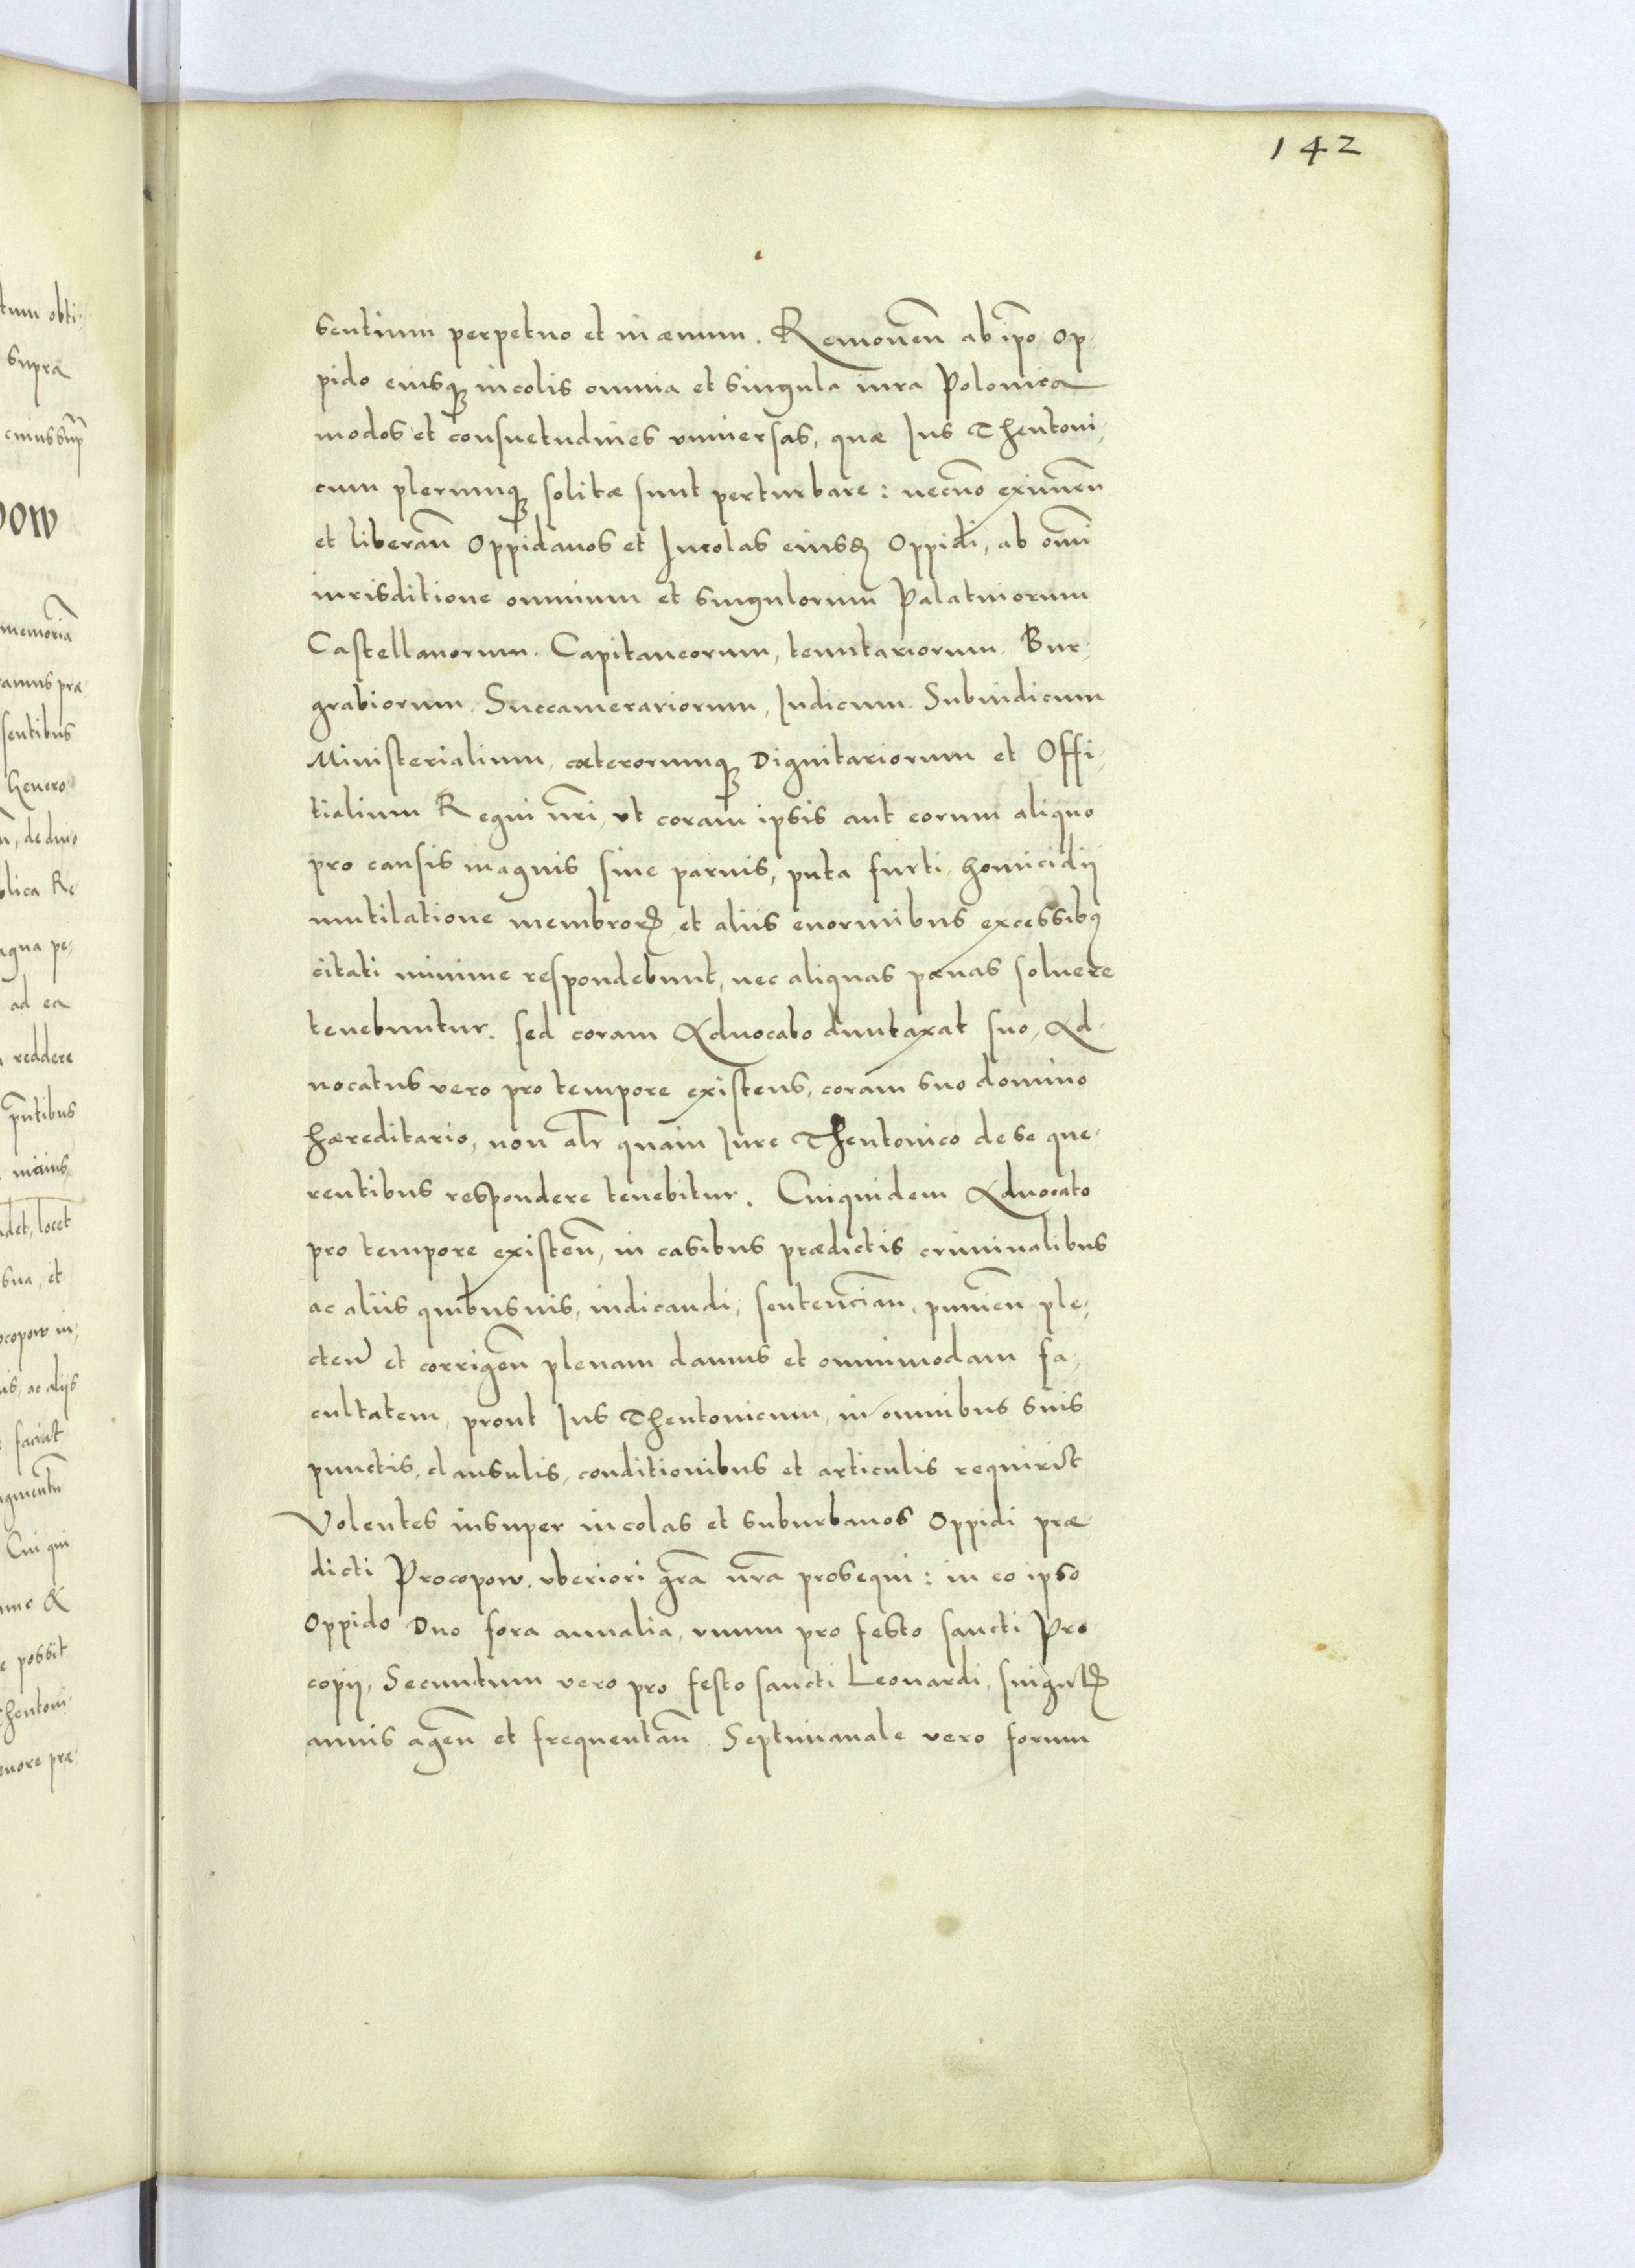 142
sentium perpetuo et in æuum. Remouen̄ ab ip̄o op
pido eiusq; incolis omnia et singula iura Polonica
modos et consuetudines vniuersas, quæ Ius Theutoni,
cum plerumq; solitæ sunt perturbare: necnō eximen̄
et liberan̄ Oppidanos et Incolas eiusdē Oppidi, ab om̄i
iurisditione omnium et singulorum Palatinorum
Castellanorum. Capitaneorum, tenutariorum. Bur,
grabiorum. Succamerariorum, Iudicum. Subiudicum
Ministerialium, cæterorumq; Dignitariorum et Offi,
tialium Regni nr̄i, vt coram ipsis aut eorum aliquo
pro causis magnis siue paruis, puta furti, homicidij
mutilatione membrorꝝ et aliis enormibus excessibꝰ
citati minime respondebunt, nec aliquas pœnas soluere
tenebuntur. sed coram Aduocato duntaxat suo, Ad
uocatus vero pro tempore existens, coram suo domino
hæreditario, non alr̄ quam Iure Theutonico de se que,
rentibus respondere tenebitur. Cuiquidem Aduocato
pro tempore existen̄, in casibus prædictis criminalibus
ac aliis quibusuis, iudicandi, sentencian̄, punien̄ ple,
cten̄ et corrigen̄ plenam damus et omnimodam fa,
cultatem, prout Ius Theutonicum, in omnibus suis
punctis, clausulis, conditionibus et articulis requirit
Volentes insuper incolas et suburbanos Oppidi præ
dicti Procopow. vberiori gr̄a nr̄a prosequi: in eo ipso
Oppido Duo fora annalia, vnum pro festo sancti Pro
copij, Secundum vero pro festo sancti Leonardi, singulꝭ
annis agen̄ et frequentan̄. Septimanale vero forum
tum obti,
supra
cuius sup̄
pow
memoriā
ramus præ,
sentibus
henero
, de duo
blica Re
agna pe,
ad ea
reddere
pn̄tibus
det, locet
sua, et
ocopow in,
is, ac aliis
faciat
Cui qui
possit
heutoni
enore præ